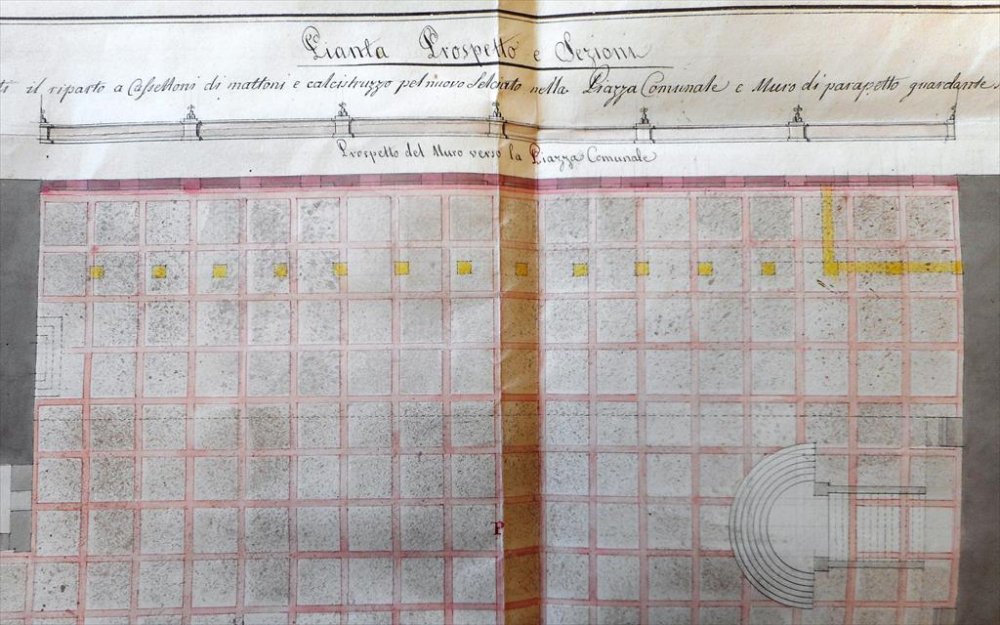 Pianta Prospetto e Sezioni
il riparto a Cassettoni di mattoni e calcistruzzo pel nuovo Selciato nella Piazza Comunale e Muro di parapetto guardante
Prospetto del Muro verso la Piazza Comunale
P